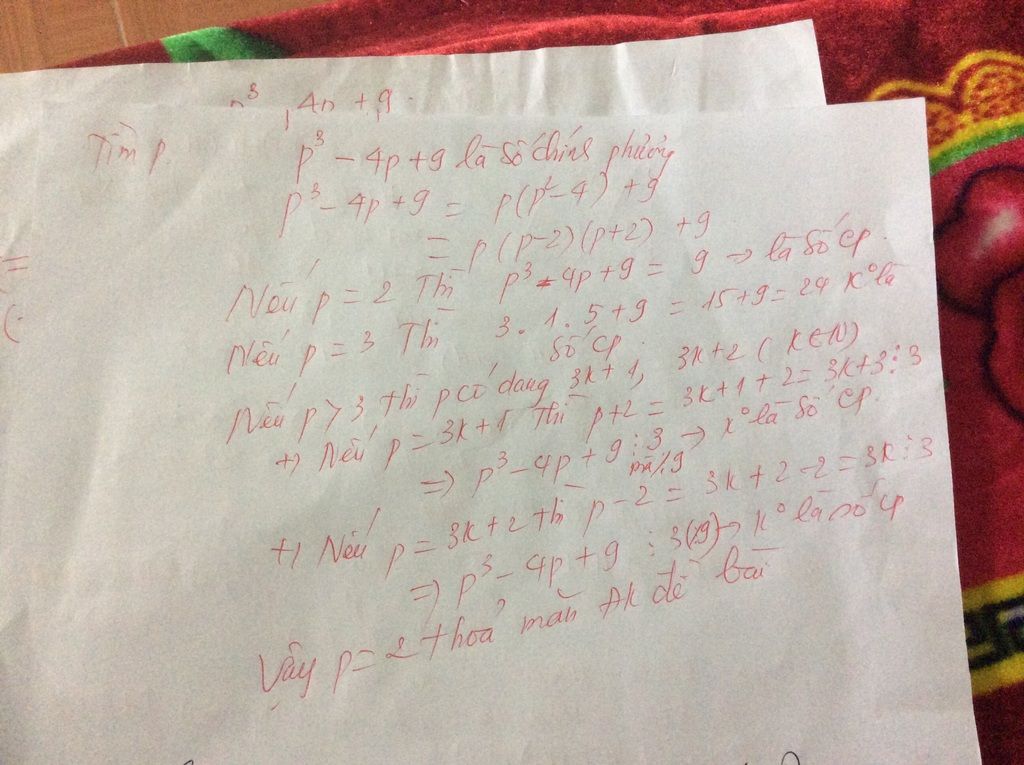 4p + 9.
Tìm p. p³ - 4p + 9 là số chính phương
p³ - 4p + 9 = p(p² - 4) + 9
= p(p-2)(p+2) + 9
Nếu p = 2 Thì p³ - 4p + 9 = 9 → là số cp.
Nếu p = 3 Thì 3 . 1 . 5 + 9 = 15 + 9 = 24 K° là
số cp.
Nếu p > 3 thì p có dạng 3k + 1, 3k + 2 (K ∈ N)
+) Nếu p = 3k + 1 Thì p + 2 = 3k + 1 + 2 = 3k + 3 ⋮ 3
⇒ p³ - 4p + 9 ⋮ 3 → K° là số cp.
+) Nếu p = 3k + 2 thì p - 2 = 3k + 2 - 2 = 3k ⋮ 3
⇒ p³ - 4p + 9 ⋮ 3 → K° là số cp
Vậy p = 2 thoả mãn ĐK đề bài